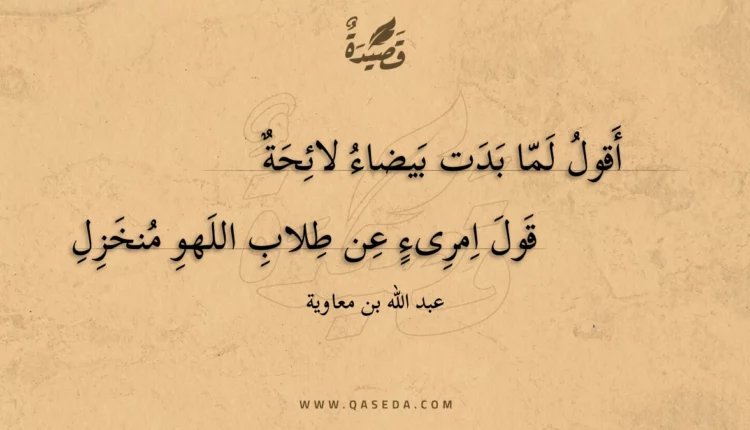 قَصِيْدَةٌ
أَقولُ لَمّا بَدَت بَيضاءُ لائِحَةٌ
قَولَ اِمرِىءٍ عِن طِلابِ اللَهوِ مُنخَزِلِ
عبد الله بن معاوية
WWW.QASEDA.COM